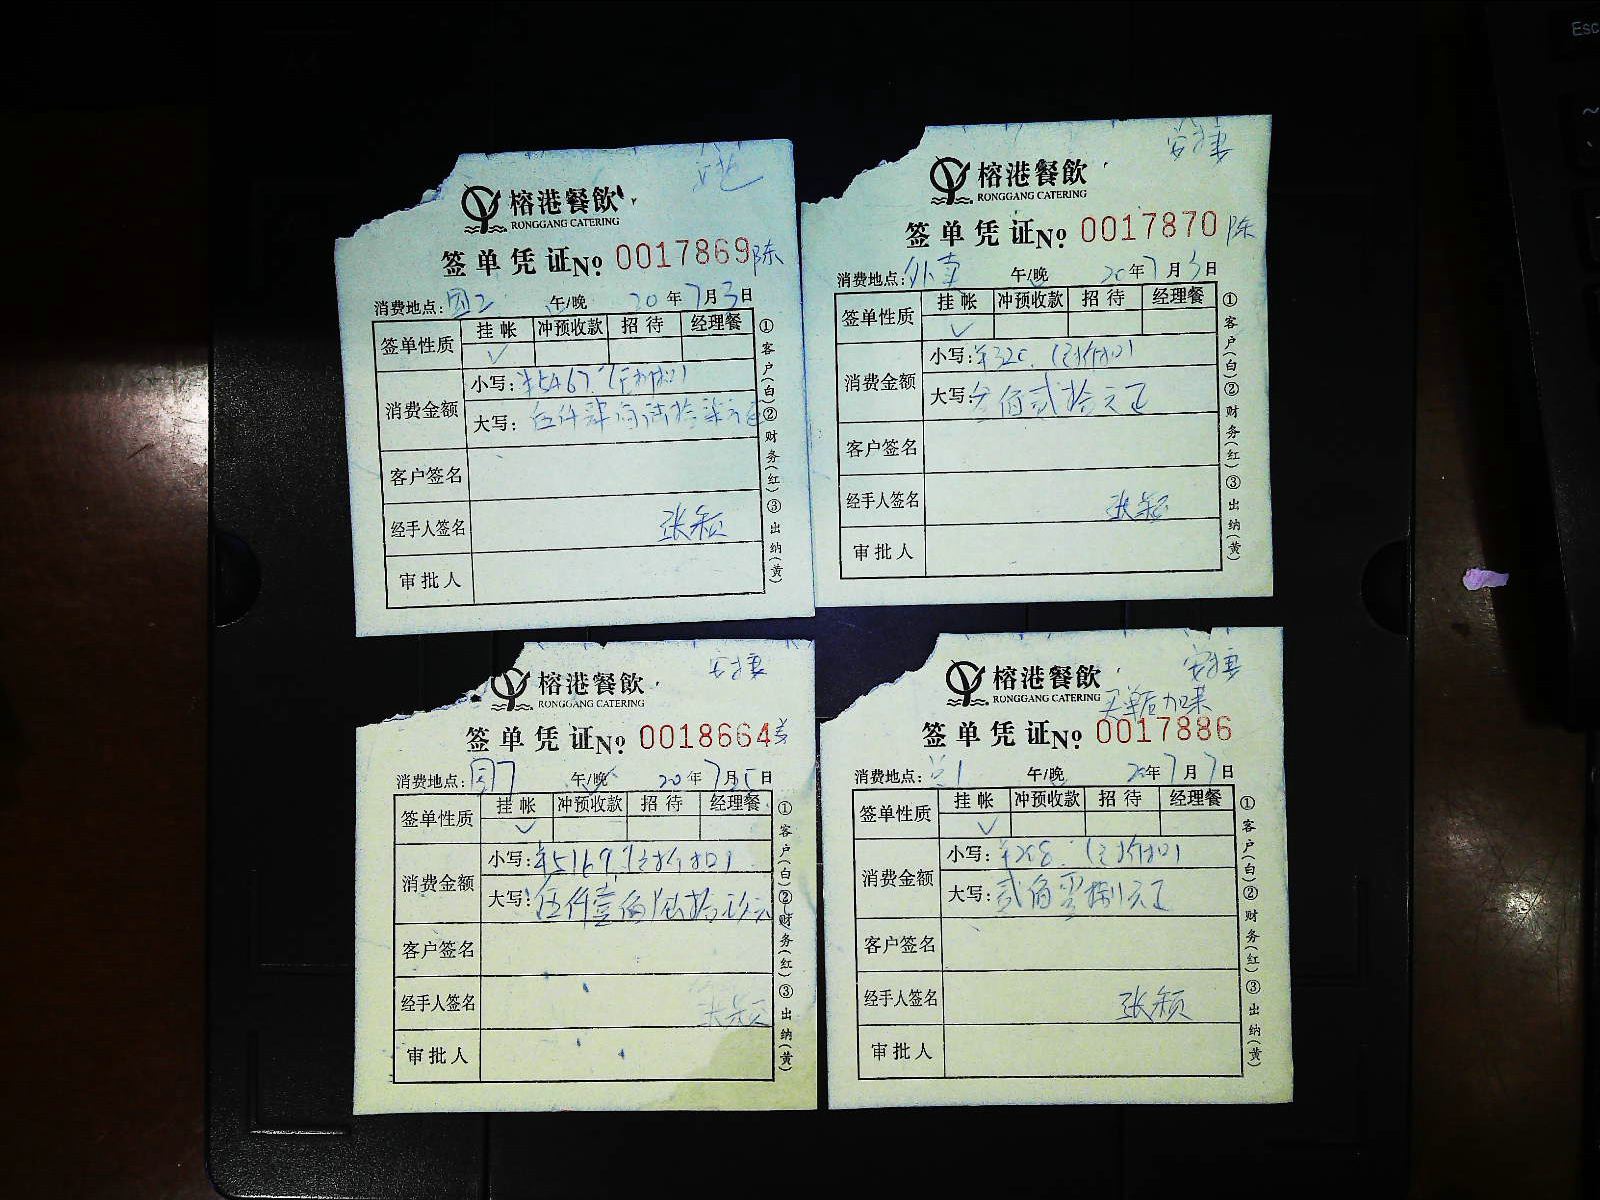 榕港餐飲
RONGGANG CATERING
签单凭证No 0017869 陈
消费地点: 午/晚 20年7月3日
签单性质 挂帐 冲预收款 招待 经理餐
✓
消费金额 小写:¥5467.
大写:
客户签名
经手人签名 张颖
审批人
①客户(白)②财务(红)③出纳(黄)
安捷
榕港餐飲
RONGGANG CATERING
签单凭证No 0017870 陈
消费地点:外卖 午/晚 20年7月3日
签单性质 挂帐 冲预收款 招待 经理餐
✓
消费金额 小写:¥320.(已折扣)
大写:叁佰贰拾元正
客户签名
经手人签名 张颖
审批人
①客户(白)②财务(红)③出纳(黄)
安捷
榕港餐飲
RONGGANG CATERING
签单凭证No 0018664
消费地点: 午/晚 20年7月5日
签单性质 挂帐 冲预收款 招待 经理餐
✓
消费金额 小写:¥5169.(已折扣)
大写:伍仟壹佰陆拾玖元
客户签名
经手人签名 张颖
审批人
①客户(白)②财务(红)③出纳(黄)
安捷
榕港餐飲
RONGGANG CATERING
买单后加菜
签单凭证No 0017886
消费地点: 午/晚 20年7月7日
签单性质 挂帐 冲预收款 招待 经理餐
✓
消费金额 小写:¥208.(已折扣)
大写:贰佰零捌元正
客户签名
经手人签名 张颖
审批人
①客户(白)②财务(红)③出纳(黄)
Esc